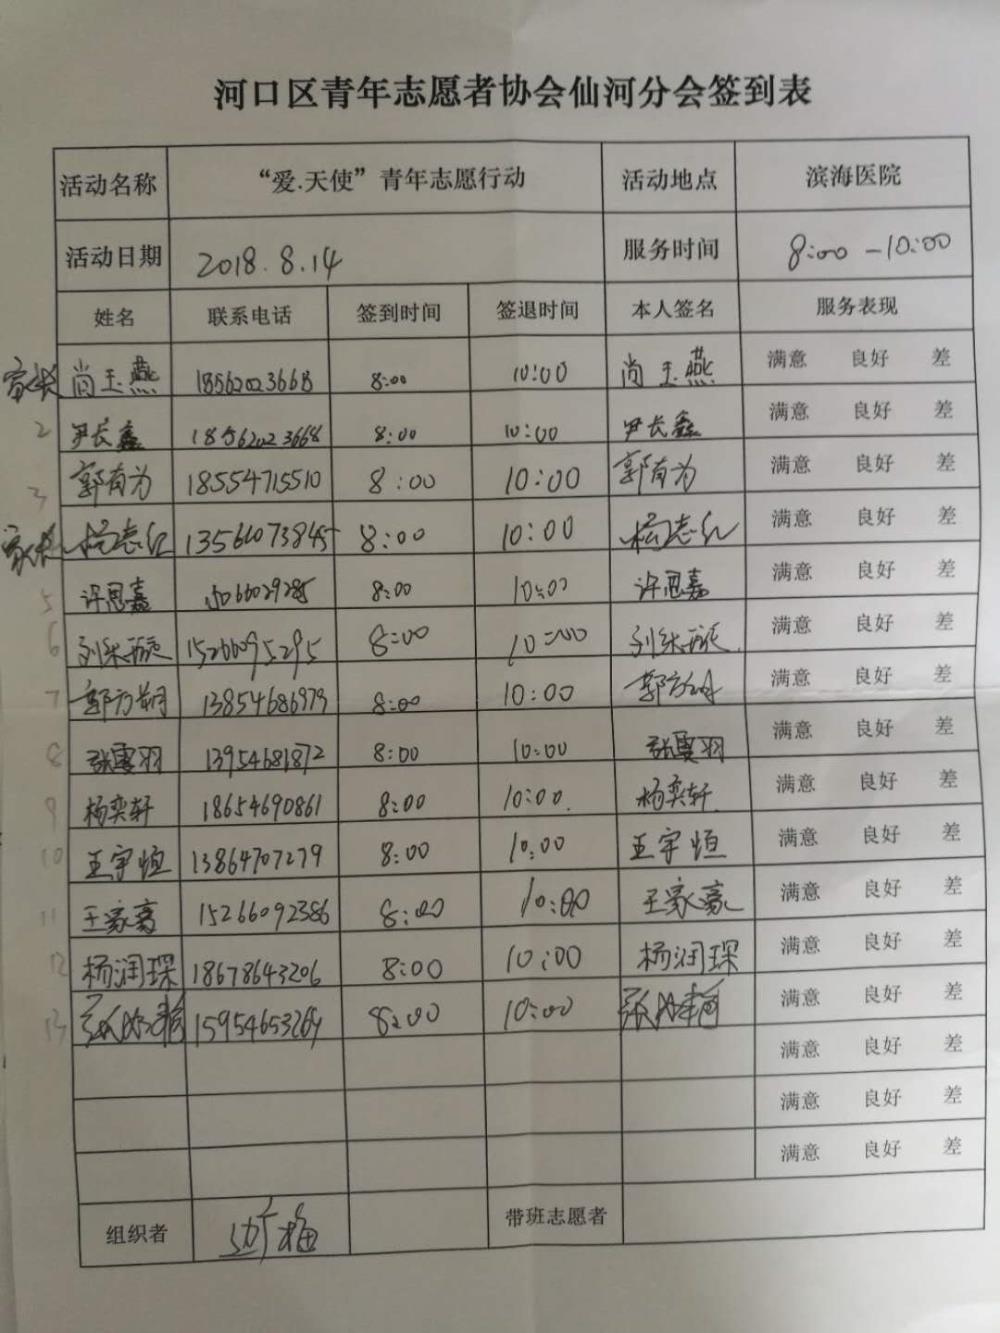 河口区青年志愿者协会仙河分会签到表
活动名称 “爱.天使”青年志愿行动 活动地点 滨海医院
活动日期 2018.8.14 服务时间 8:00-10:00
姓名 联系电话 签到时间 签退时间 本人签名 服务表现
家长 尚玉燕 18562023668 8:00 10:00 尚玉燕 满意 良好 差
2 尹长鑫 18562023668 8:00 10:00 尹长鑫 满意 良好 差
3 郭有为 18554715510 8:00 10:00 郭有为 满意 良好 差
家长 杨志红 13561073845 8:00 10:00 杨志红 满意 良好 差
5 许思嘉 15066029285 8:00 10:00 许思嘉 满意 良好 差
6 15266095295 8:00 10:00 满意 良好 差
7 13854686979 8:00 10:00 满意 良好 差
8 张雯羽 13954681872 8:00 10:00 张雯羽 满意 良好 差
9 杨奕轩 18654690861 8:00 10:00. 杨奕轩 满意 良好 差
10 王宇恒 13864707279 8:00 10:00 王宇恒 满意 良好 差
11 王家豪 15266092386 8:00 10:00 王家豪 满意 良好 差
12 杨润琛 18678643206 8:00 10:00 杨润琛 满意 良好 差
13 15954653269 8:00 10:00 满意 良好 差
满意 良好 差
满意 良好 差
满意 良好 差
组织者 带班志愿者